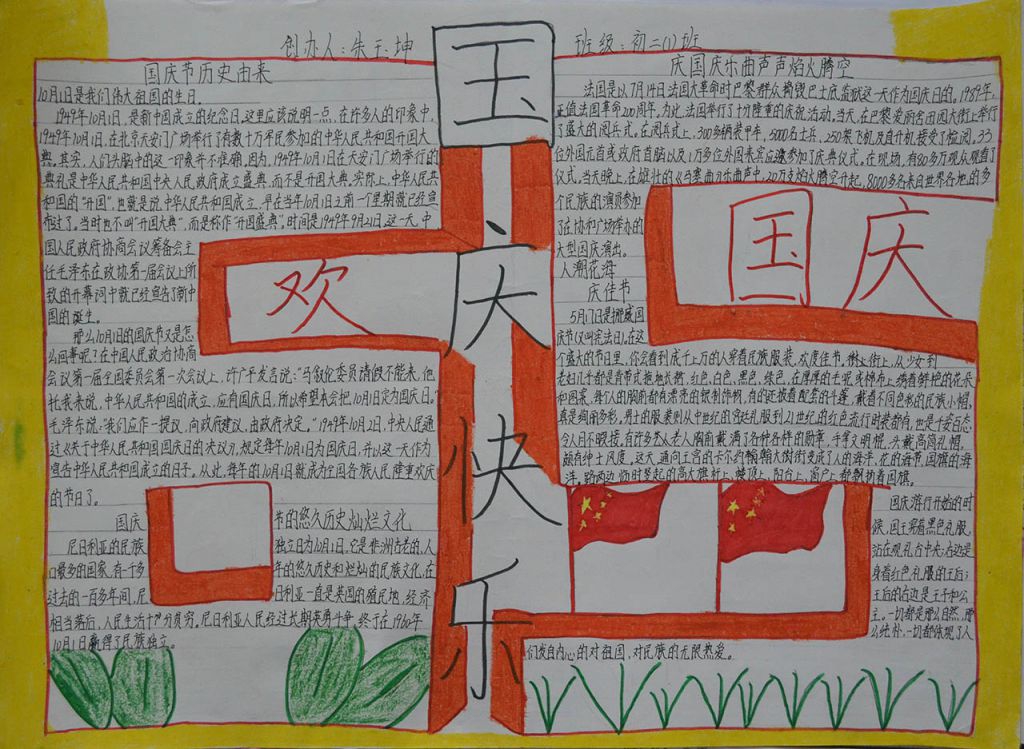 创办人:朱玉坤
班级:初二(1)班
国庆快乐
国庆节历史由来
10月1日是我们伟大祖国的生日。
1949年10月1日,是新中国成立的纪念日。这里应该说明一点,在许多人的印象中,
1949年10月1日,在北京天安门广场举行了有数十万军民参加的中华人民共和国开国大
典。其实,人们头脑中的这一印象并不准确。因为,1949年10月1日在天安门广场举行的
典礼是中华人民共和国中央人民政府成立盛典,而不是开国大典。实际上,中华人民共
和国的“开国”,也就是说中华人民共和国成立,早在当年10月1日之前一个星期就已经宣
布过了。当时也不叫“开国大典”,而是称作“开国盛典”。时间是1949年9月21日。这一天,中
国人民政府协商会议筹备会主
任毛泽东在政协第一届会议上所
致的开幕词中就已经宣告了新中
国的诞生。
欢
那么10月1日的国庆节又是怎
么回事呢?在中国人民政治协商
会议第一届全国委员会第一次会议上,许广平发言说:“马叙伦委员请假不能来,他
托我来说,中华人民共和国的成立,应有国庆日,所以希望本会把10月1日定为国庆日。”
毛泽东说:“我们应作一提议,向政府建议,由政府决定。”1949年10月2日,中央人民通
过《关于中华人民共和国国庆日的决议》,规定每年10月1日为国庆日,并以这一天作为
宣告中华人民共和国成立的日子。从此,每年的10月1日就成为全国各族人民隆重欢庆
的节日了。
国庆节的悠久历史灿烂文化
尼日利亚的民族独立日为10月1日。它是非洲古老的、人
口最多的国家,有一千多年的悠久历史和烂灿的民族文化。在
过去的一百多年间,尼日利亚一直是英国的殖民地,经济
相当落后,人民生活十分贫穷。尼日利亚人民经过长期英勇斗争,终于在1960年
10月1日赢得了民族独立。
庆国庆乐曲声声焰火腾空
法国是以7月14日法国大革命时巴黎群众捣毁巴士底监狱这一天作为国庆日的。1989年,
正值法国革命200周年,为此,法国举行了十分隆重的庆祝活动。当天,在巴黎爱丽舍田园大街上举行
了盛大的阅兵式。在阅兵式上,300多辆装甲车、5000名士兵、250架飞机及直升机接受了检阅。33
位外国元首或政府首脑以及1万多位外国来宾应邀参加了庆典仪式。在现场,有80多万观众观看了
仪式。当天晚上,在雄壮的《马赛曲》乐曲声中,20万支焰火腾空升起,8000多名来自世界各地的多
个民族的演员参加
了在协和广场举办的
大型国庆演出。
国庆
人潮花海
庆佳节
5月17日是挪威国
庆节(又叫宪法日)。在这
个盛大的节日里,你会看到成千上万的人穿着民族服装,欢度佳节。街上,从少女到
老妇几乎都是背带式拖地长裙,红色、白色、黑色、绿色,在厚厚的毛呢或棉布上绣着鲜艳的花朵
和图案,每个人的胸前都有漂亮的银制饰物,有的还披着配套的斗篷,戴着不同色彩的民族小帽,
真是绚丽多彩。男士的服装则从中世纪的宫廷礼服到21世纪的红色流行时装都有,也是千姿百态,
令人目不暇接。有许多老人胸前戴满了各种各样的勋章,手拿文明棍,头戴高筒礼帽,
颇有绅士风度。这天,通向王宫的卡尔约翰翰大街变成了人的海洋、花的海带、国旗的海
洋。路两边临时竖起的高大旗杆上、楼顶上、阳台上、窗户上都飘扬着国旗。
国庆游行开始的时
候,国王穿着黑色礼服,
站在观礼台中央;右边是
身着红色礼服的王后;
王后的右边是王子和公
主。一切都是那么自然,那
么纯朴,一切都体现了人
们发自内心的对祖国、对民族的无限热爱。